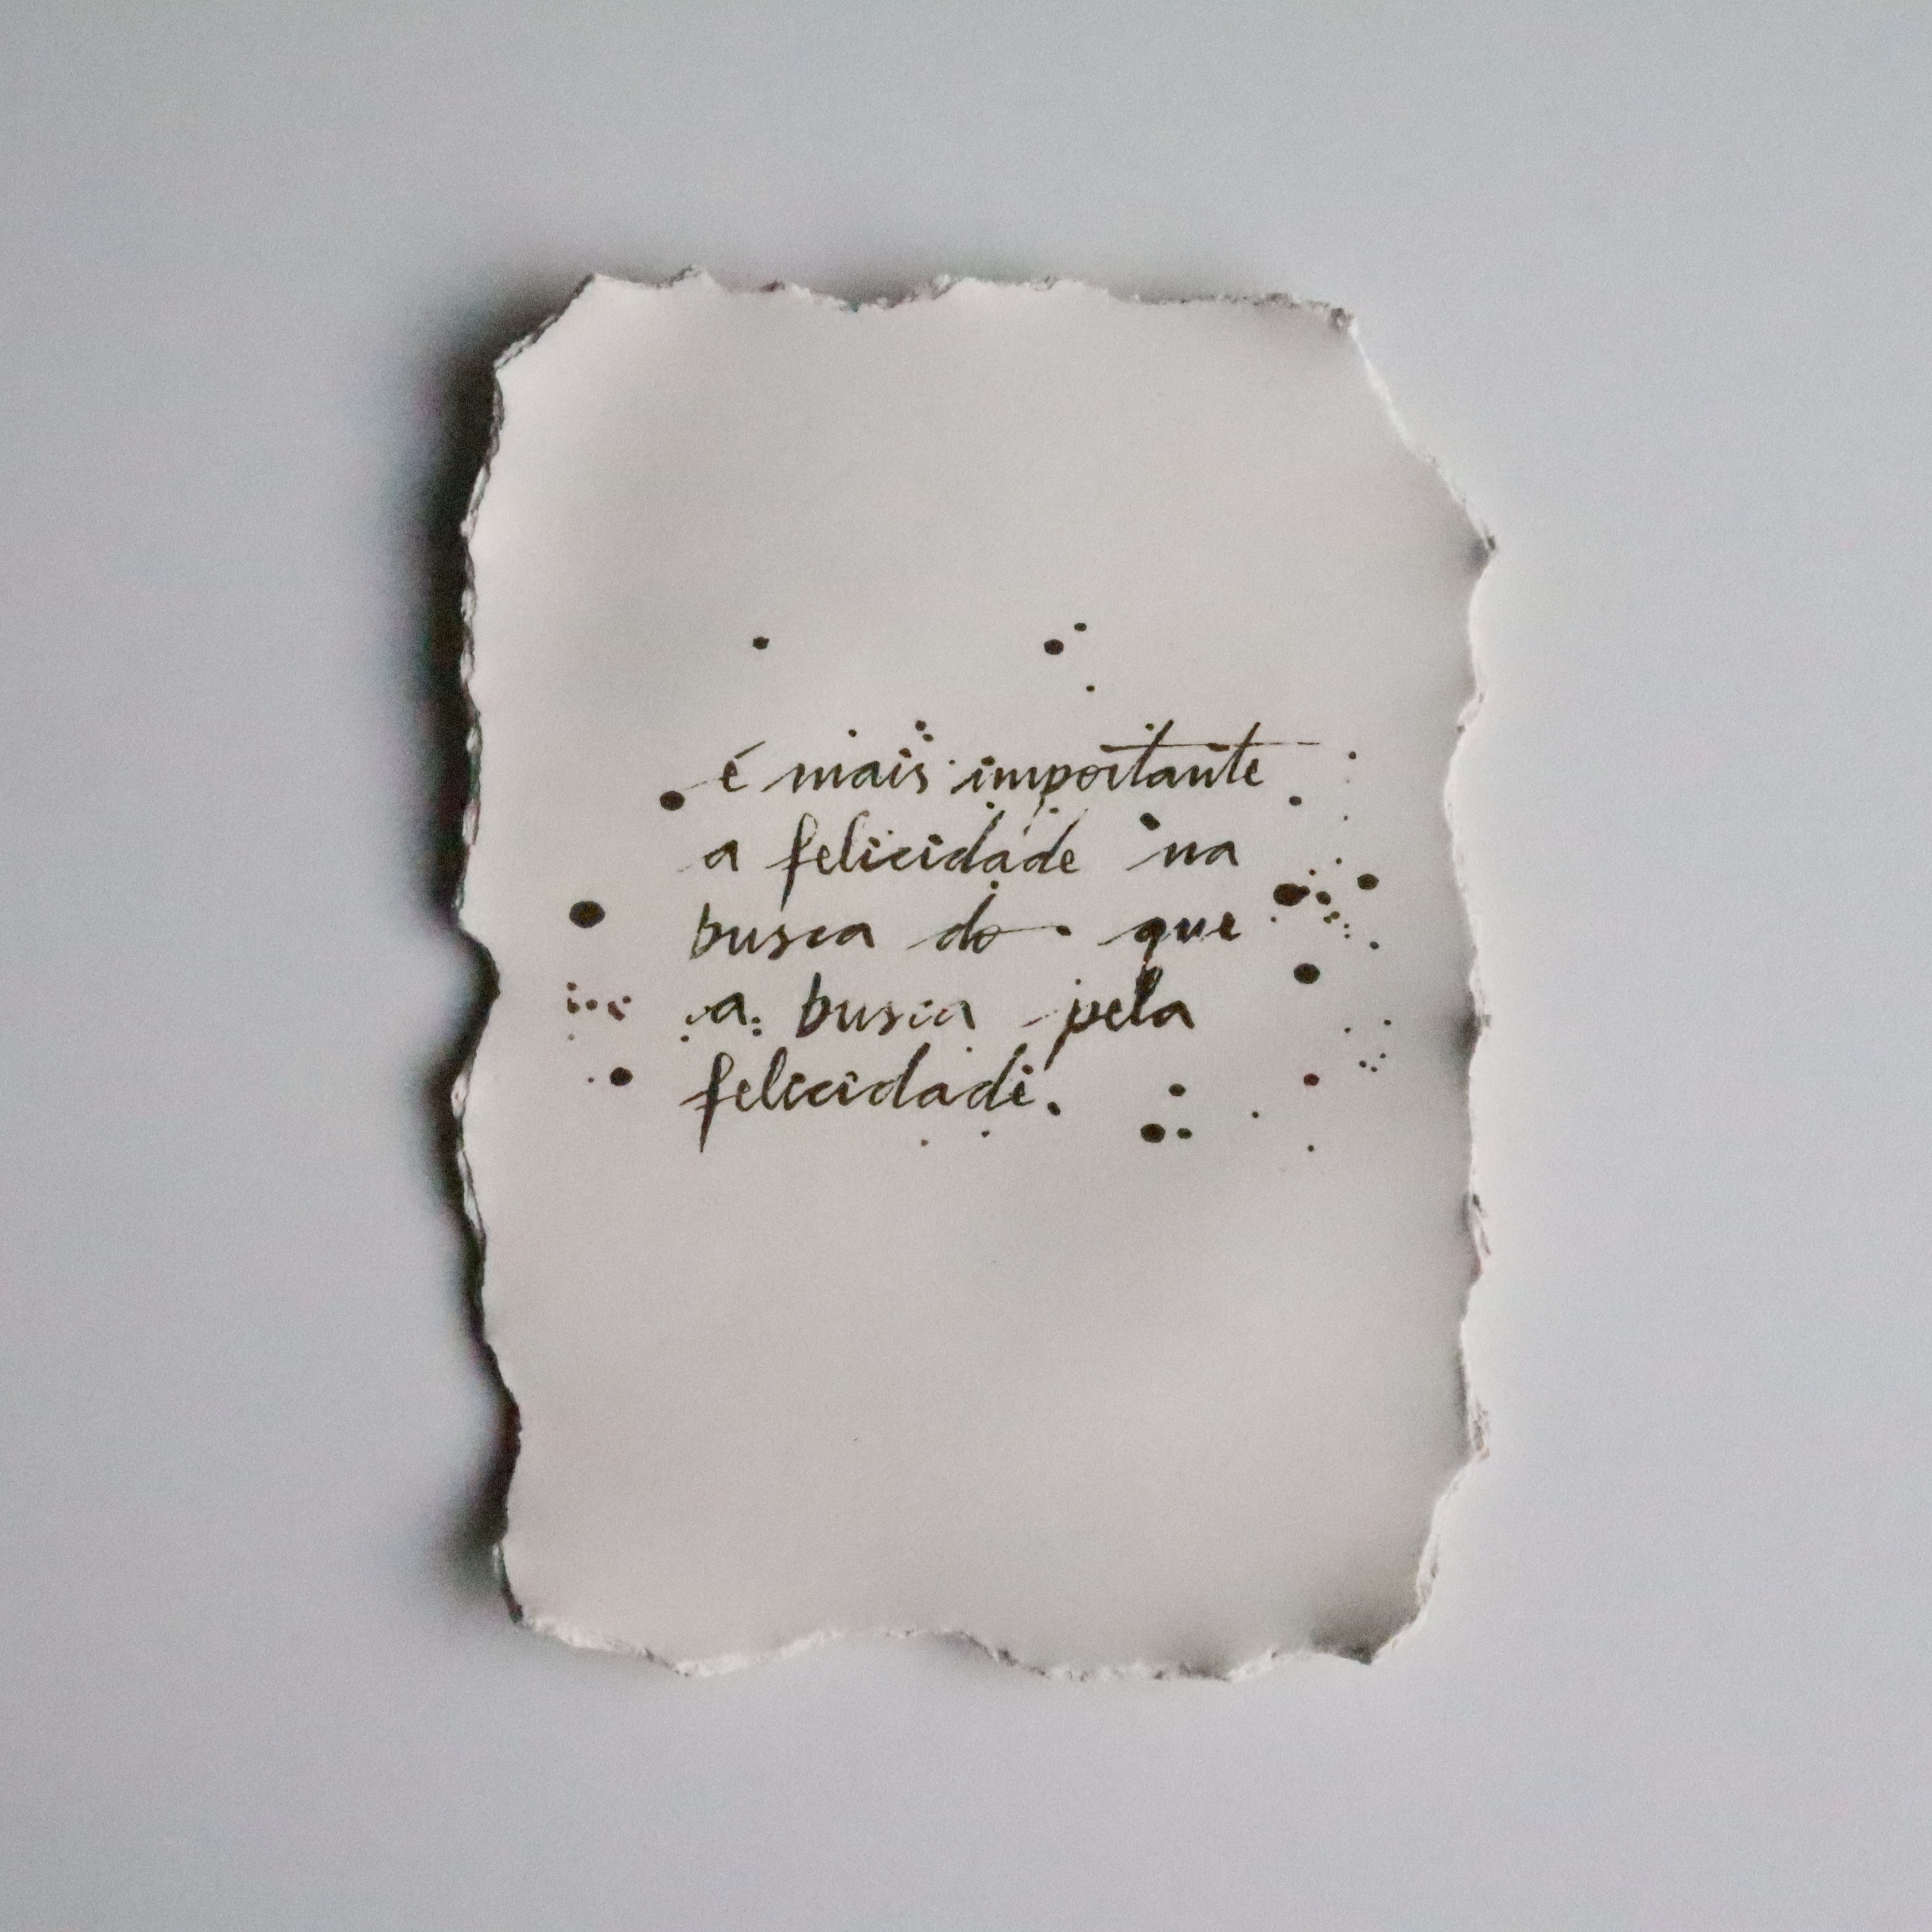 é mais importante
a felicidade na
busca do que
a busca pela
felicidade.